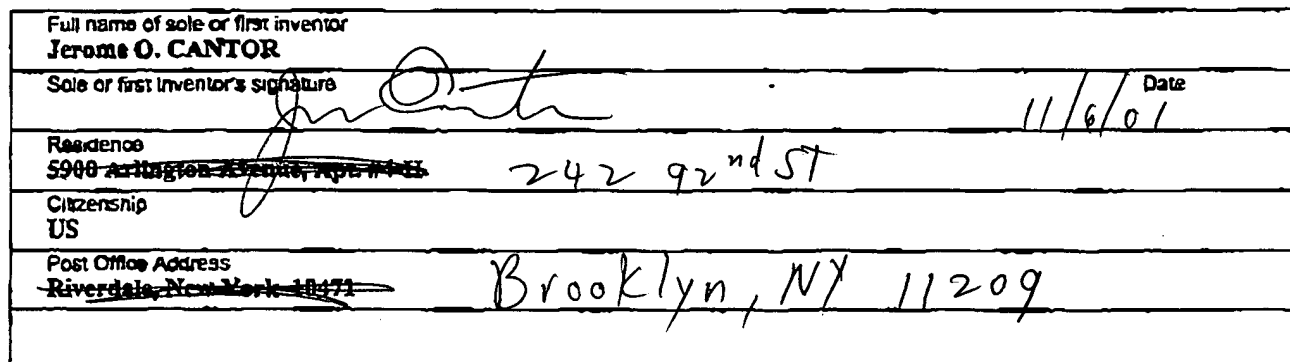 Full name of sole or first inventor
Jerome O. CANTOR
Sole or first inventor's signature
Date
11/6/01
Residence
5900 Arlington Avenue, Apt. 242 92nd ST
Citizenship
US
Post Office Address
Riverdale, New York 10471 Brooklyn, NY 11209